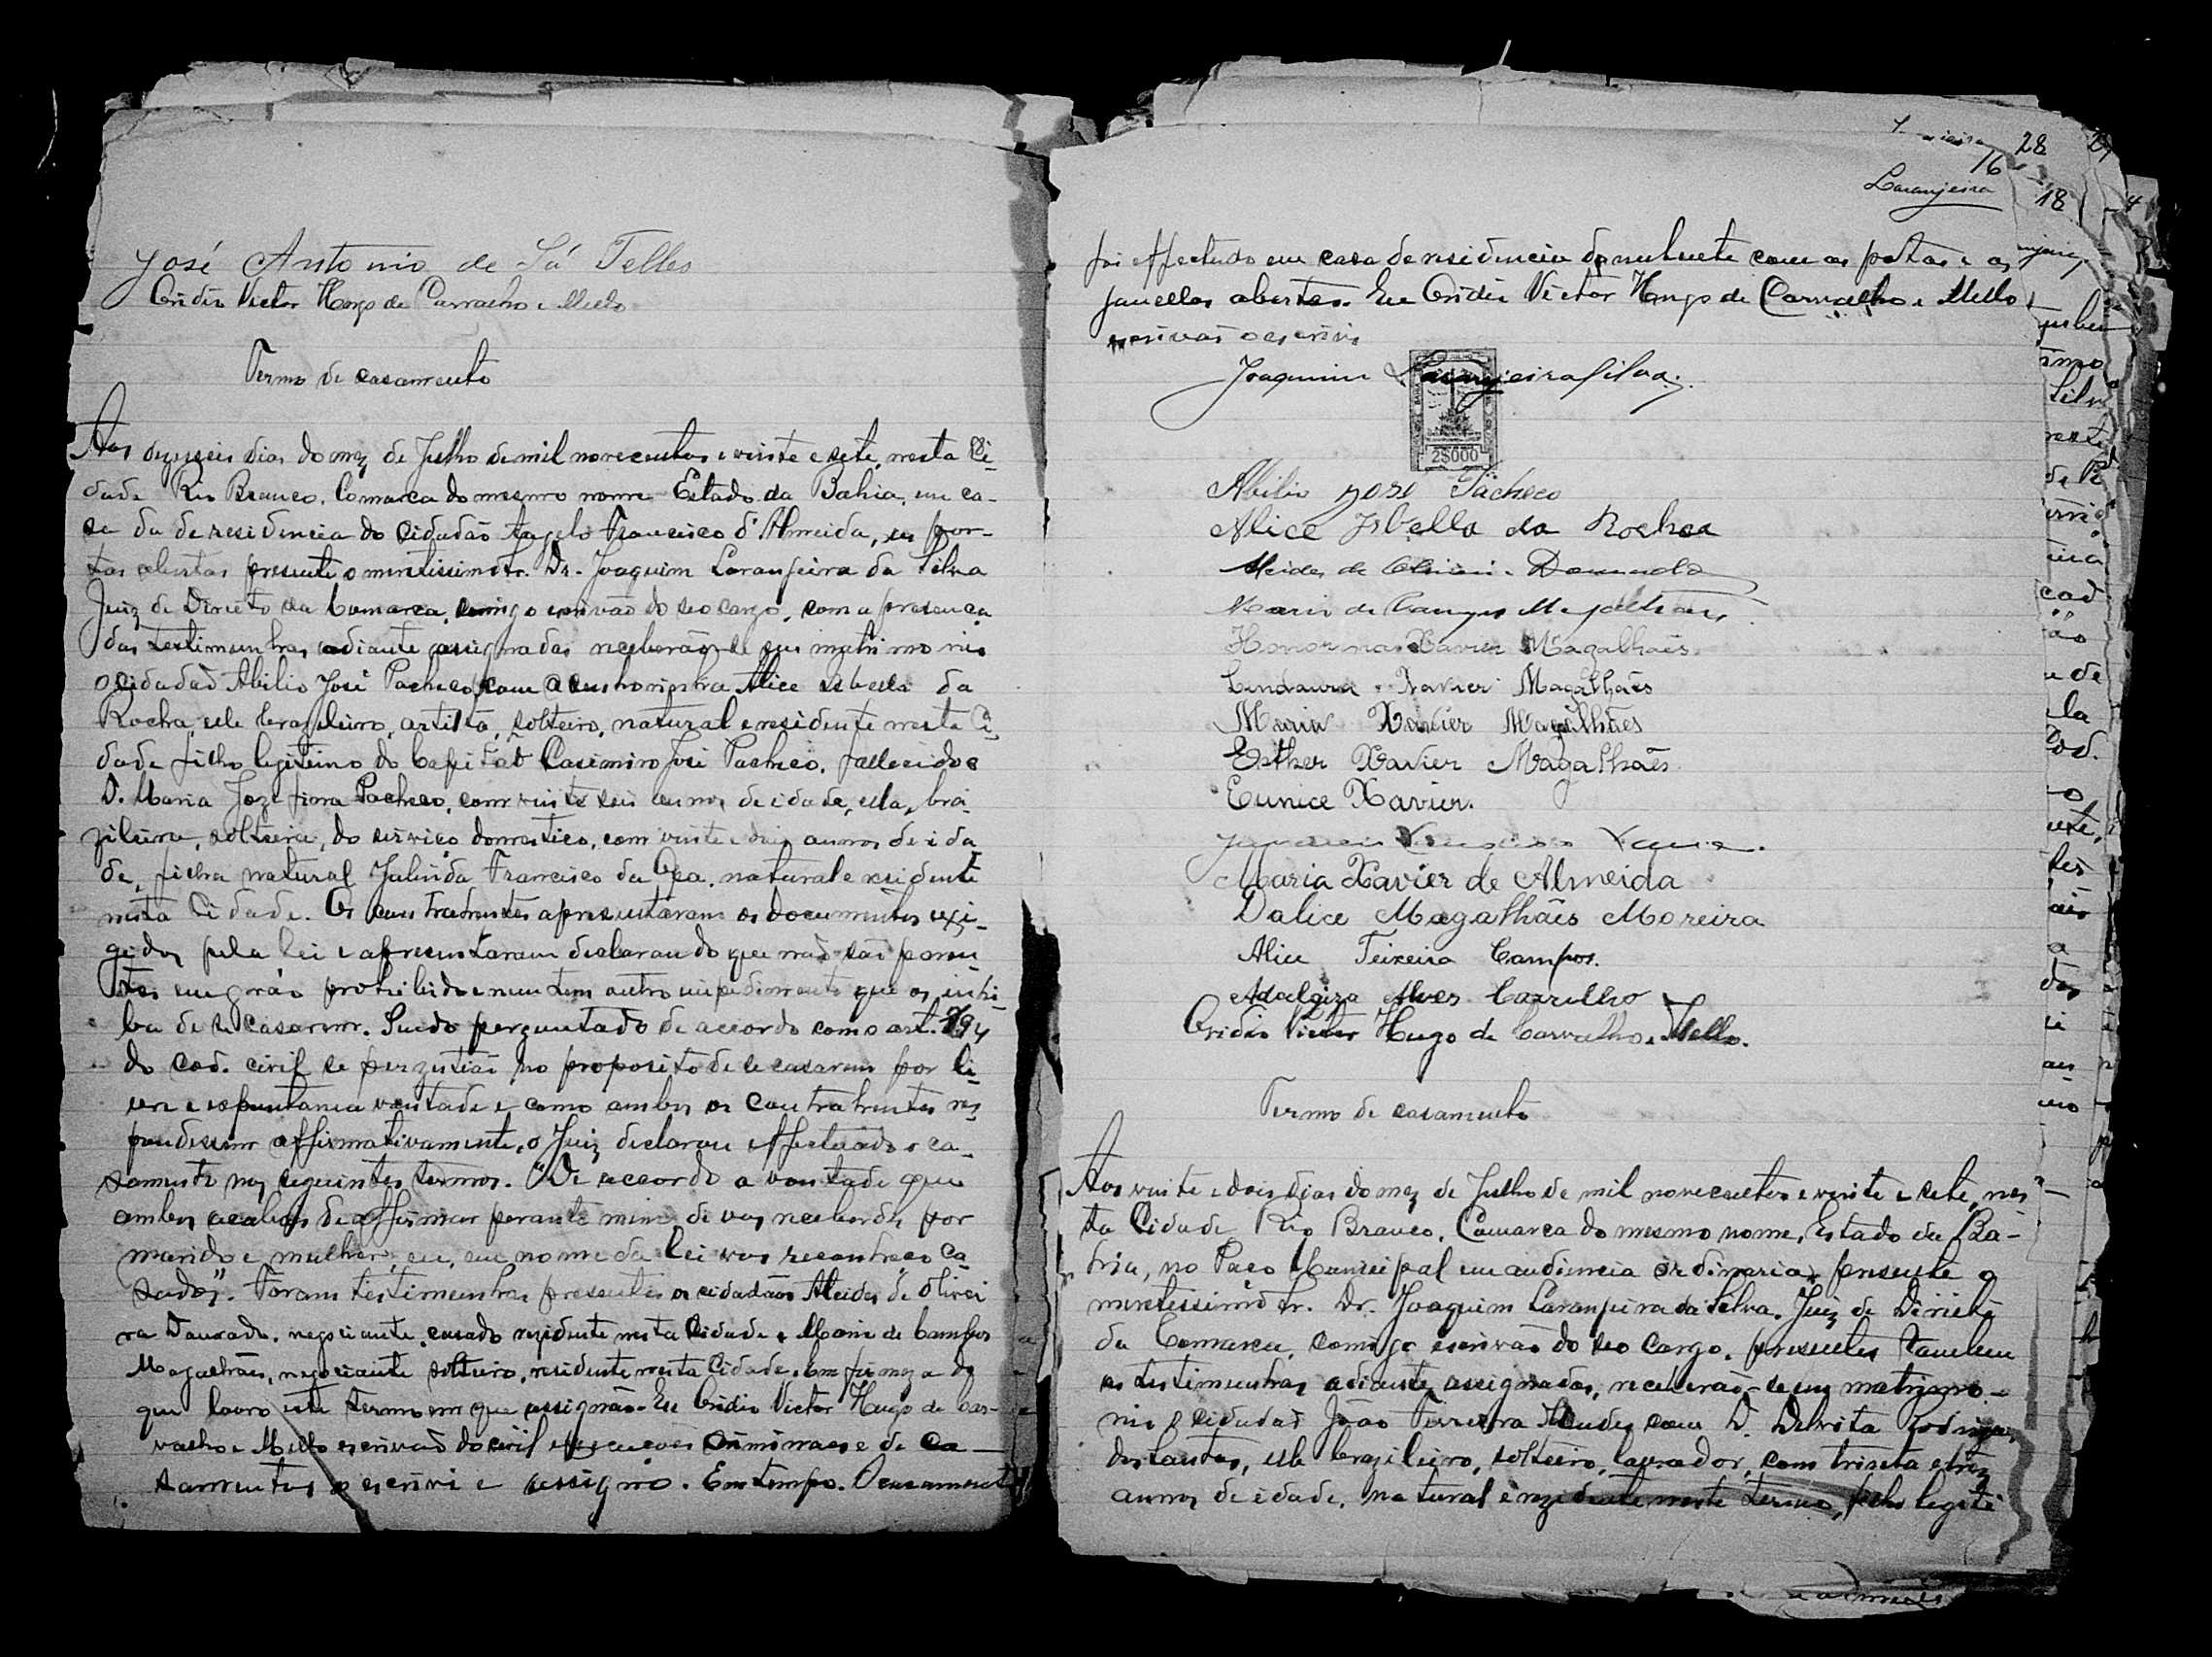 José Antonio de Sá Telles
Ovidio Victor Hugo de Carvalho e Mello
Termo de casamento
Aos dezeseis dias do mez de Julho de mil novecentos e vinte e sete, nesta Ci-
dade Rio Branco, Comarca do mesmo nome Estado da Bahia, em ca-
sa da de residencia do cidadão Angelo Francisco d'Almeida, as por-
tas abertas presente o meretissimo Sr. Dr. Joaquim Laranjeira da Silva
Juiz de Direito da Comarca, comigo escrivão do seo cargo, com a presença
das testimunhas adiante assignadas receberão-se em matrimonio
o cidadão Abilio José Pacheco, com a senhorinha Alice Isbella da
Rocha, elle brazileiro, artista, solteiro, natural e residente nesta Ci-
dade filho legitimo do Capitão Casimiro José Pacheco, fallecido e
D. Maria Jozefina Pacheco, com vinte seis annos de idade, ella, bra-
zileira, solteira, do serviço domestico, com vinte e dois annos de ida-
de, filha natural Francisco da natural e residente
nesta Cidade. Os contrahentes apresentaram os documentos exi-
gidos pela lei e apresentaram declarando que não são paren-
tes em gráo prohibido e nem tem outro impedimento que os inhi-
ba de se casarem. Sendo perguntado de accordo com o art. 194
do cod. civil se no proposito de se casarem por li-
vre e espontanea vontade e como ambos os contrahentes res-
pondessem affirmativamente, o Juiz declarou effectuado o ca-
samento nos seguintes termos. "De accordo a vontade que
ambos acabaes de affirmar perante mim de vos receberdes por
marido e mulher, eu, em nome da lei vos reconheço ca-
sados". Foram testimunhas presentes os cidadãos Alcides de Olivei
ra Dourado, negociante casado residente nesta Cidade e Mario de Campos
Magalhães, negociante solteiro, residente nesta Cidade. Em firmeza do
que lavro este termo em que assignão. Eu Ovidio Victor Hugo de Car-
valho e Mello escrivão do civil execuções criminaes e de ca-
samentos o escrevi e assigno. Em tempo. O casamento
28
16
Laranjeira
18
foi effectuado em casa de residencia do nubente com as portas e as
janellas abertas. Eu Ovidio Victor Hugo de Carvalho e Mello
escrivão o escrivi
Joaquim Laranjeira Silva.
2$000
Abilio José Pacheco
Alice Isbella da Rocha
Alcides de Oliveira Dourado
Mario de Campos Magalhães
Honorina Xavier Magalhães
Lindaura Xavier Magalhães
Maria Xavier Magalhães
Esther Xavier Magalhães
Eunice Xavier.
Maria Xavier de Almeida
Dalice Magalhães Moreira
Alice Teixeira Campos.
Adalgiza Alves Carvilho
Ovidio Victor Hugo de Carvalho e Mello.
Termo de casamento
Aos vinte e dois dias do mez de Julho de mil novecentos e vinte e sete, nes-
ta Cidade Rio Branco, Comarca do mesmo nome, Estado da Ba-
hia, no Paço Municipal em audiencia ordinaria, presente o
meretissimo Sr. Dr. Joaquim Laranjeira da Silva, Juiz de Direito
da Comarca, comigo escrivão do seo cargo, presentes tambem
as testimunhas adiante assignadas, receberão-se em matrimo-
nio o cidadão João Ferreira Mendes com D. Delvita Rodrigues
dos Santos, elle brazileiro, solteiro, lavrador, com trinta e tres
annos de idade, natural e rezidente neste termo, filho legiti